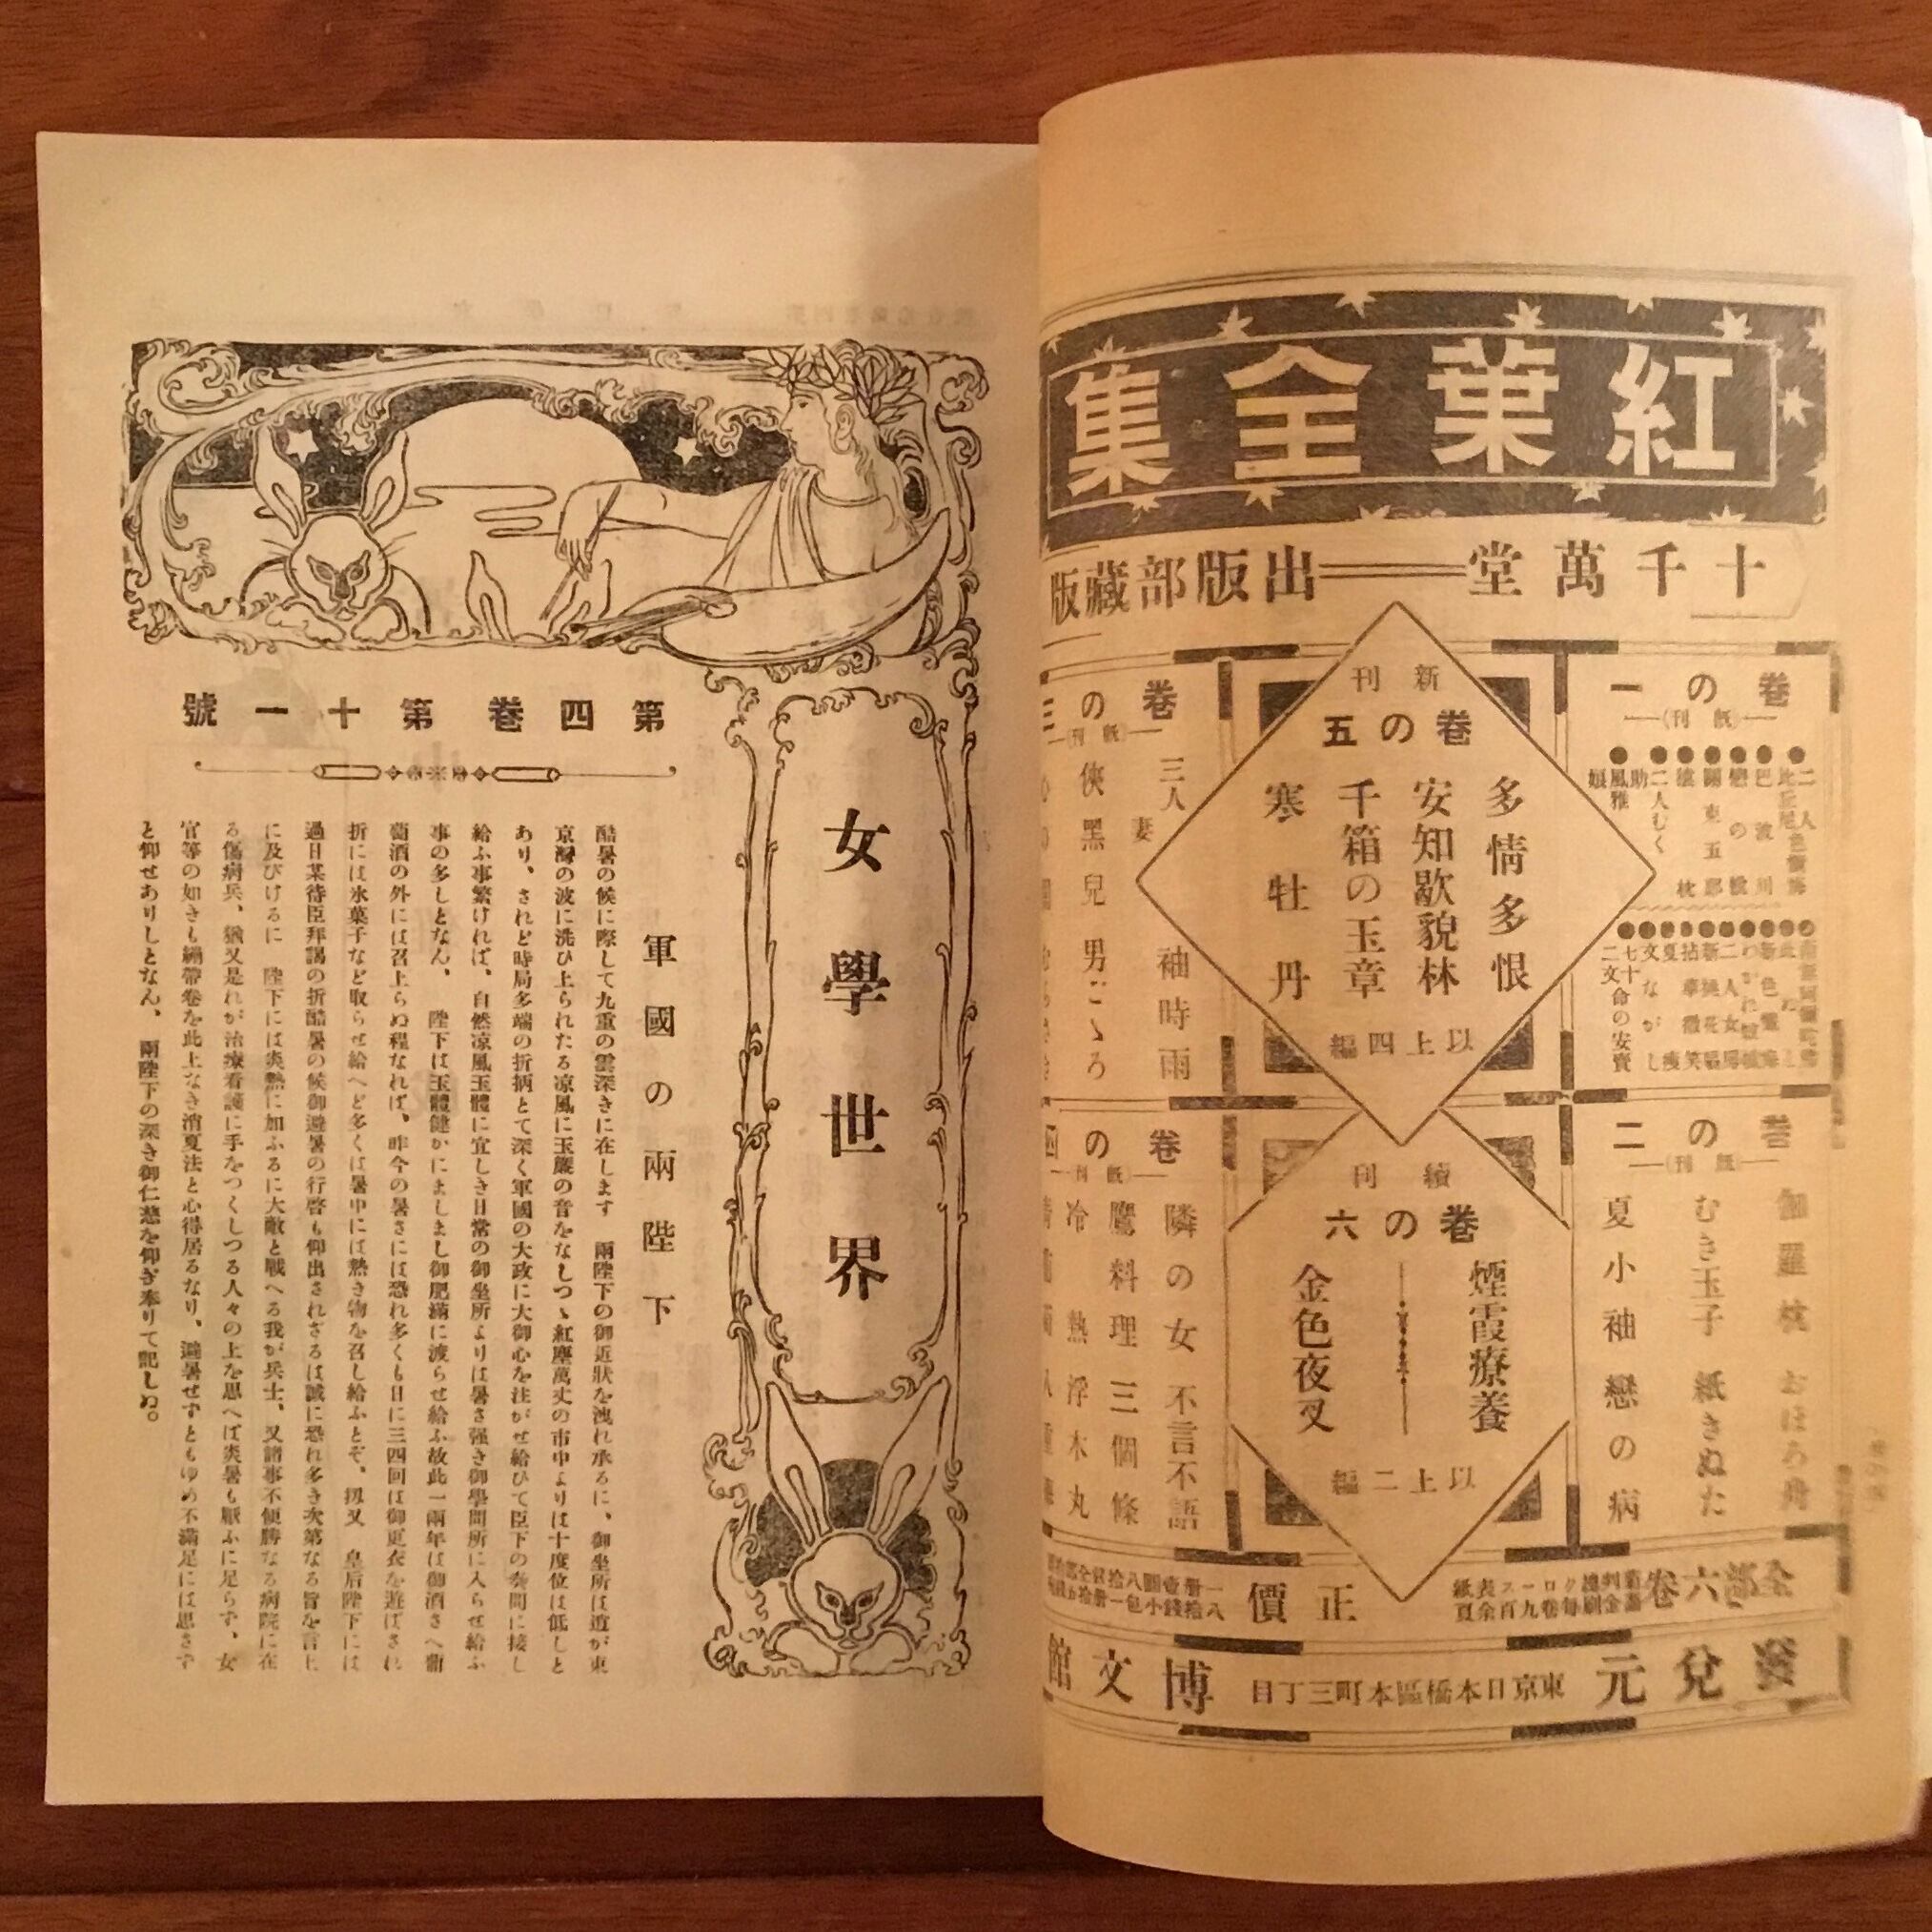 紅葉全集
十千萬堂══出版部藏版
卷の一
(既刊)
二人むく助
風雅娘
巴波川
戀の蛻
關東五郎
二人女房
新桃花扇
拈華微笑
夏痩
文ながし
七十二文命の安賣
卷の二
(既刊)
伽羅枕
おぼろ舟
むき玉子
紙きぬた
夏小袖
戀の病
新刊
卷の五
多情多恨
安知歇貌林
千箱の玉章
寒牡丹
以上四編
續刊
卷の六
煙霞療養
金色夜叉
以上二編
卷の三
(既刊)
三人妻
袖時雨
俠黑兒
男ごゝろ
卷の四
(既刊)
隣の女
不言不語
鷹料理
三個條
冷熱
浮木丸
全部六卷
正價
發兌元
東京日本橋區本町三丁目
博文館
女學世界
第四卷第十一號
軍國の兩陛下
酷暑の候に際して九重の雲深きに在します　兩陛下の御近狀を洩れ承るに、御坐所は遉が東
京灣の波に洗ひ上られたる凉風に玉簾の音をなしつゝ紅塵萬丈の市中よりは十度位は低しと
あり、されど時局多端の折柄とて深く軍國の大政に大御心を注がせ給ひて臣下の奏問に接し
給ふ事繁ければ、自然凉風玉體に宜しき日常の御坐所よりは暑さ强き御學問所に入らせ給ふ
事の多しとなん、　陛下は玉體健かにましまし御肥滿に渡らせ給ふ故此一兩年は御酒さへ葡
萄酒の外には召上らぬ程なれば、昨今の暑さには恐れ多くも日に三四回は御更衣を遊ばされ
折には氷菓子など取らせ給へど多くは暑中には熱き物を召し給ふとぞ、扨又　皇后陛下には
過日某待臣拜謁の折酷暑の候御避暑の行啓も仰出されざるは誠に恐れ多き次第なる旨を言上
に及びけるに　陛下には炎熱に加ふるに大敵と戰へる我が兵士、又諸事不便勝なる病院に在
る傷病兵、猶又是れが治療看護に手をつくしつる人々の上を思へば炎暑も厭ふに足らず、女
官等の如きも繃帶卷を此上なき消夏法と心得居るなり、避暑せずともゆめ不滿足には思さず
と仰せありしとなん、　兩陛下の深き御仁慈を仰ぎ奉りて記しぬ。